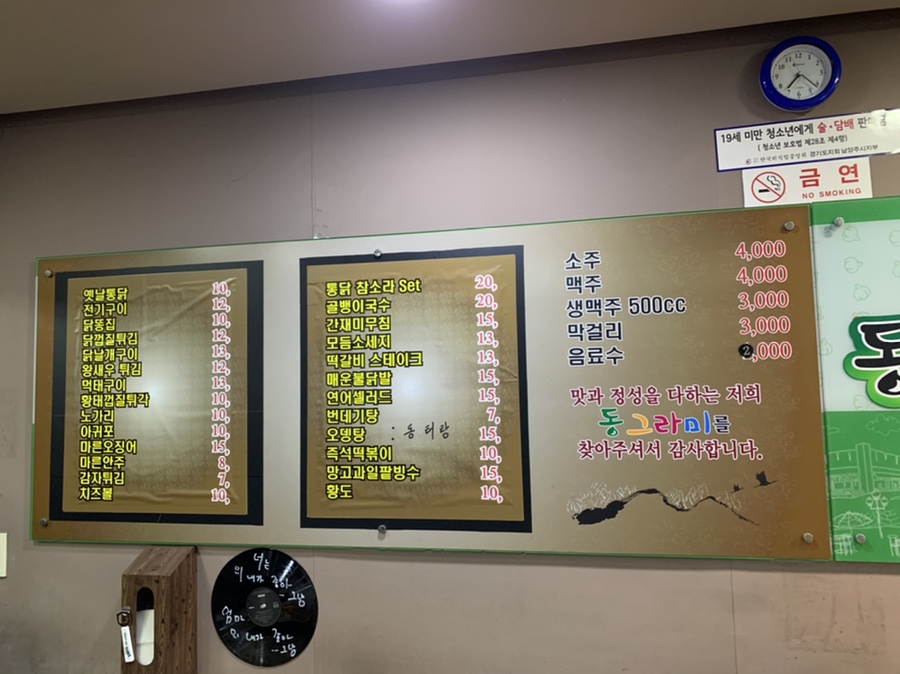 19세 미만 청소년에게 술·담배 판매
( 청소년 보호법 제28조 제4항)
한국외식업중앙회 경기도지회 남양주시지부
금연
NO SMOKING
옛날통닭 10,
전기구이 12,
닭똥집 10,
닭껍질튀김 12,
닭날개구이 13,
왕새우 튀김 12,
먹태구이 13,
황태껍질튀각 10,
노가리 10,
아귀포 10,
마른오징어 15,
마른안주 8,
감자튀김 7,
치즈볼 10,
통닭 참소라 Set 20,
골뱅이국수 20,
간재미무침 15,
모듬소세지 13,
떡갈비 스테이크 13,
매운불닭발 15,
연어샐러드 15,
번데기탕 7,
오뎅탕 : 동태탕 15,
즉석떡볶이 10,
망고과일팥빙수 15,
황도 10,
소주 4,000
맥주 4,000
생맥주 500cc 3,000
막걸리 3,000
음료수 2,000
맛과 정성을 다하는 저희
동그라미를
찾아주셔서 감사합니다.
동
너는
왜 내가 좋아
...그냥
엄마
왜 내가 좋아
...그냥